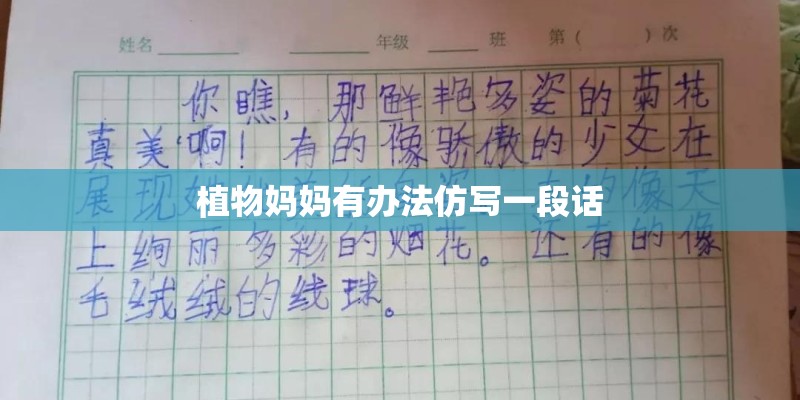 姓名 年级 班 第( )次
你瞧，那鲜艳多姿的菊花
真美啊！有的像骄傲的少女在
展现她 的像天
植物妈妈有办法仿写一段话
上绚丽多彩的烟花。还有的像
毛绒绒的线球。